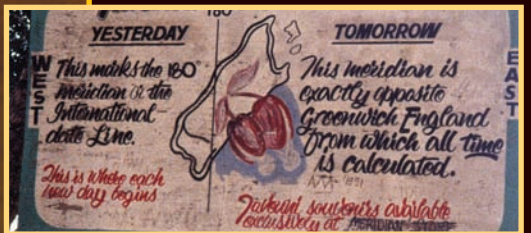 180
YESTERDAY
TOMORROW
WEST
EAST
This marks the 180
meridian or the
International
date Line.
This is where each
new day begins
This meridian is
exactly opposite
Greenwich England
from which all time
is calculated.
Taveuni souvenirs available
exclusively at MERIDIAN STORE